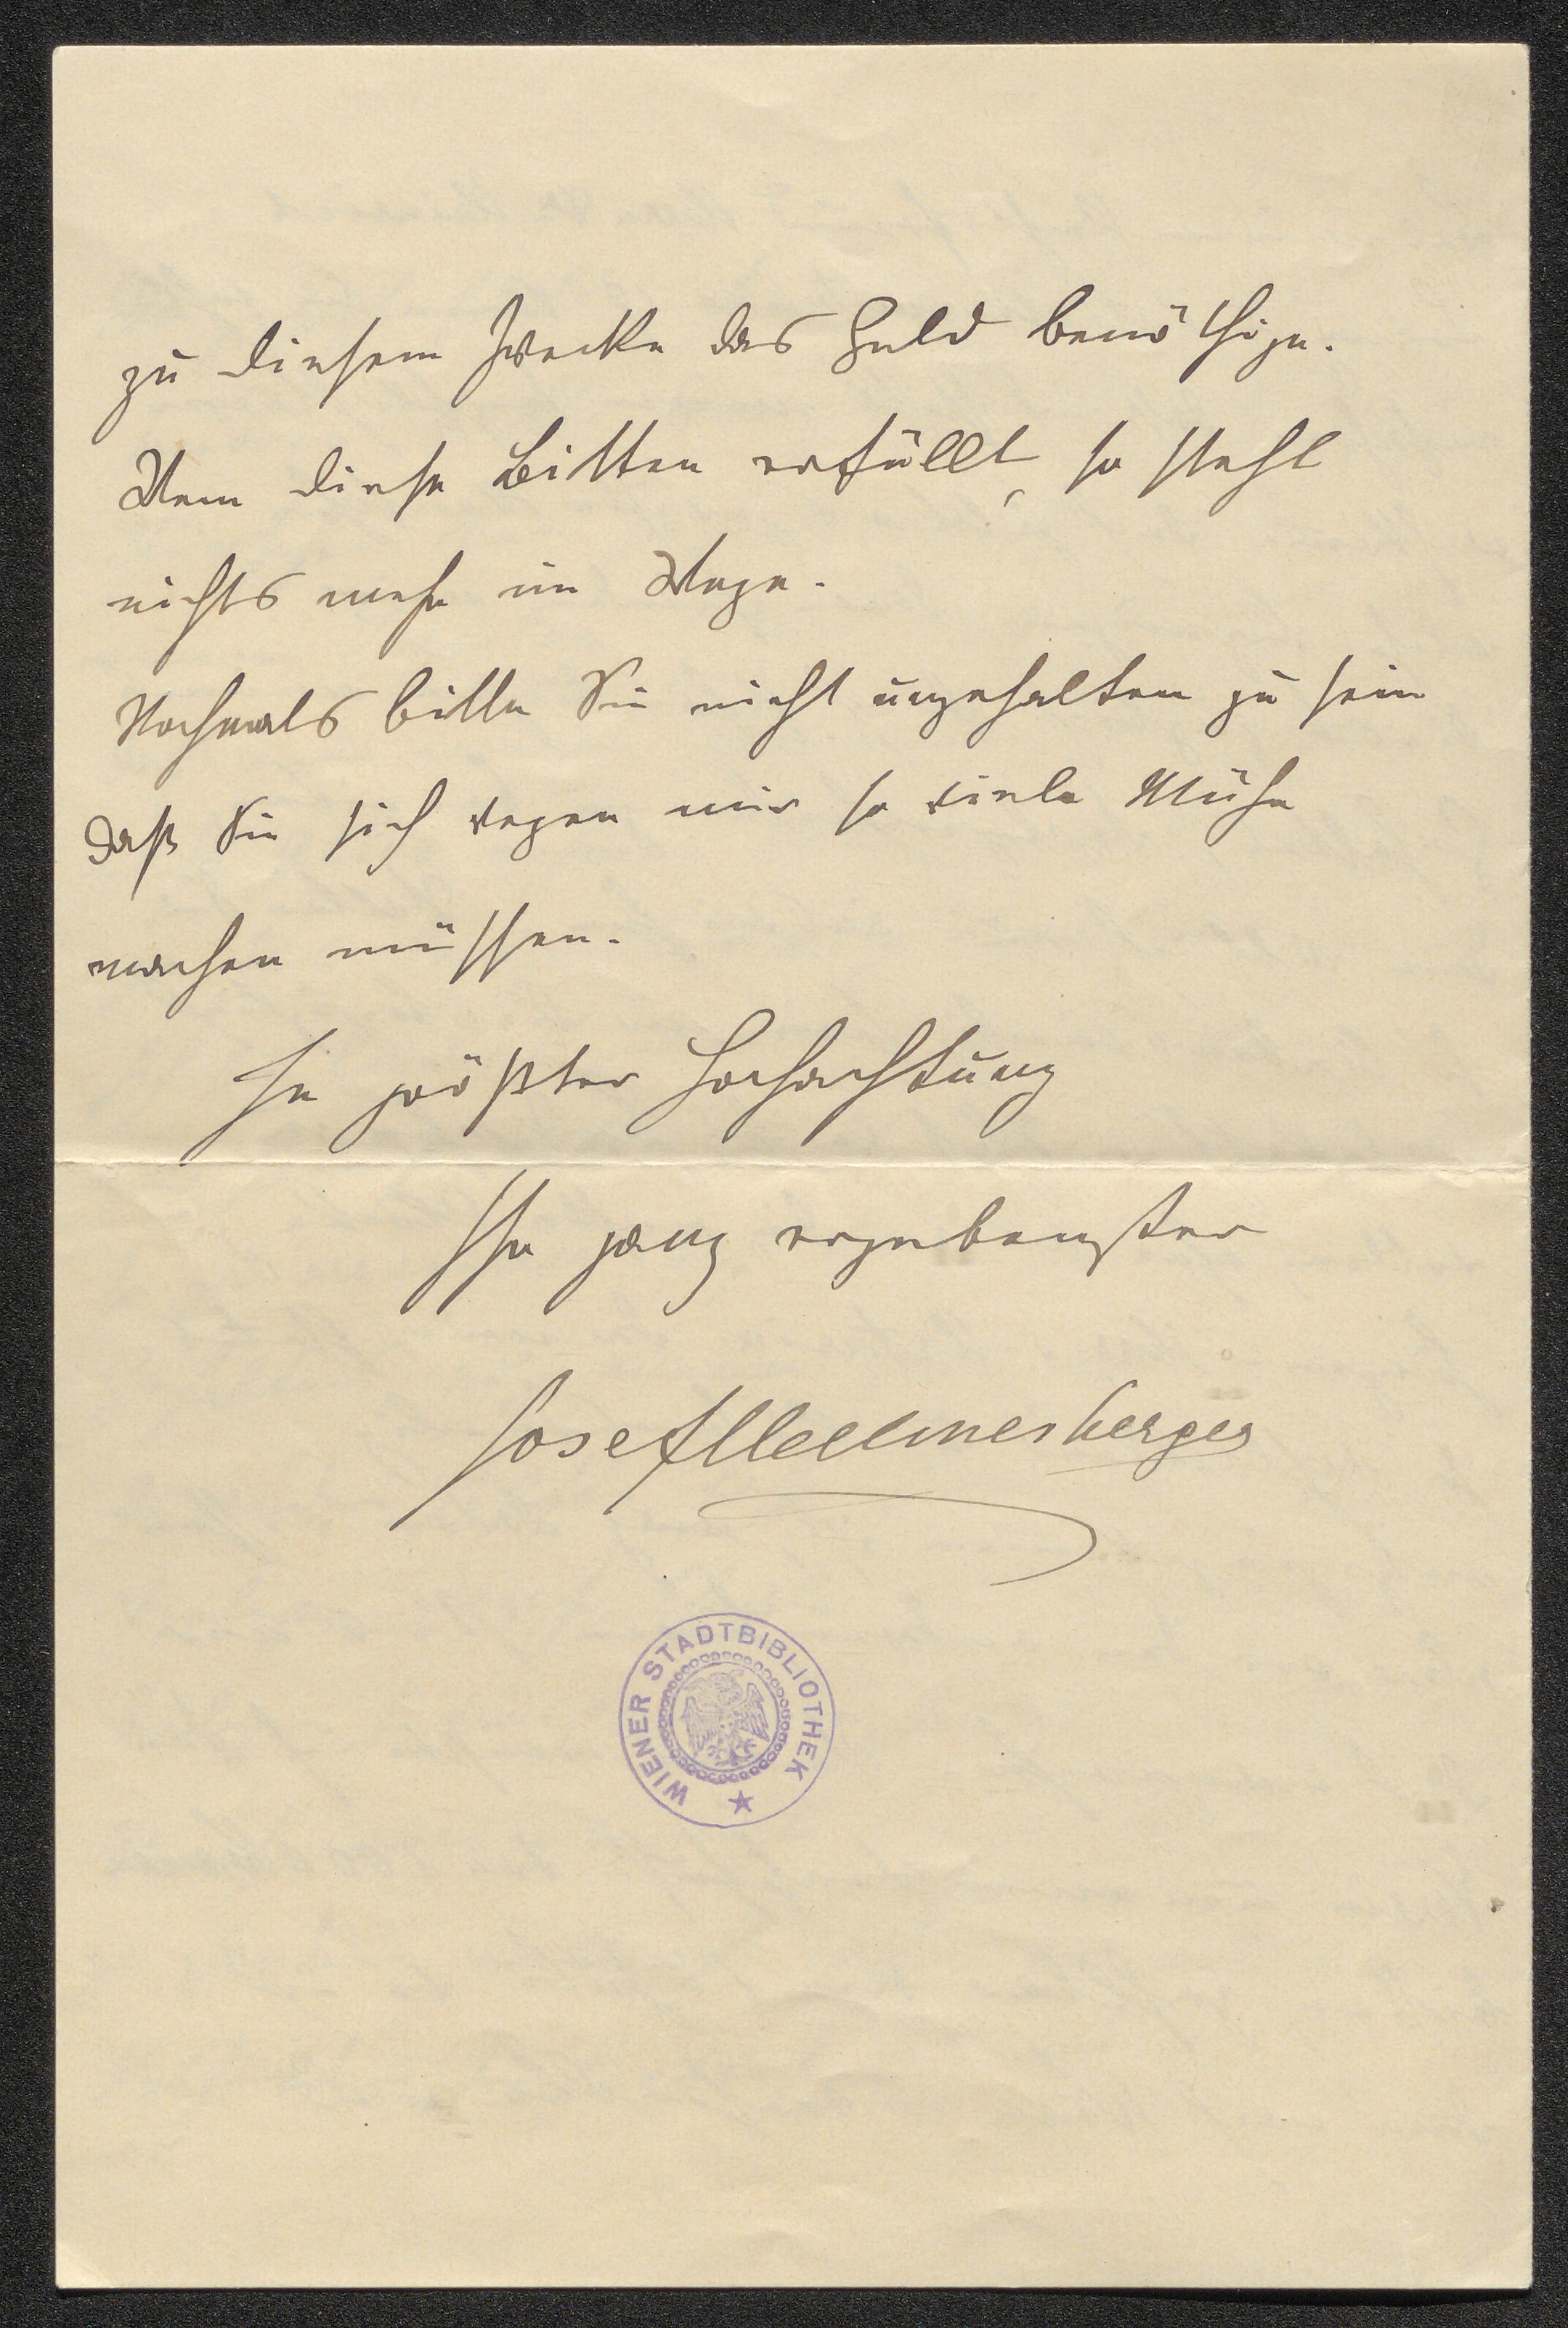 zu diesem Zwecke das Geld benöthige.
Wenn diese Bitten erfüllt, so steht
nichts mehr im Wege.
Nochmals bitte Sie nicht ungehalten zu sein
daß Sie sich wegen mir so viele Mühe
machen müssen.
In größter Hochachtung
Ihr ganz ergebenster
Josef Hellmesberger
WIENER STADTBIBLIOTHEK